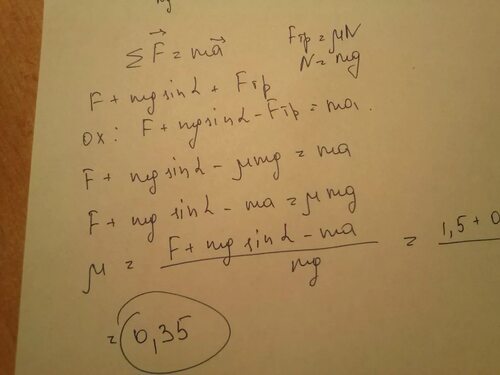 ΣF⃗ = ma⃗
Fтр = μN
N = mg
F + mg sinα + Fтр
ox: F + mg sinα - Fтр = ma.
F + mg sinα - μmg = ma
F + mg sinα - ma = μmg
μ = (F + mg sinα - ma) / mg = 1,5 + 0
= 0,35